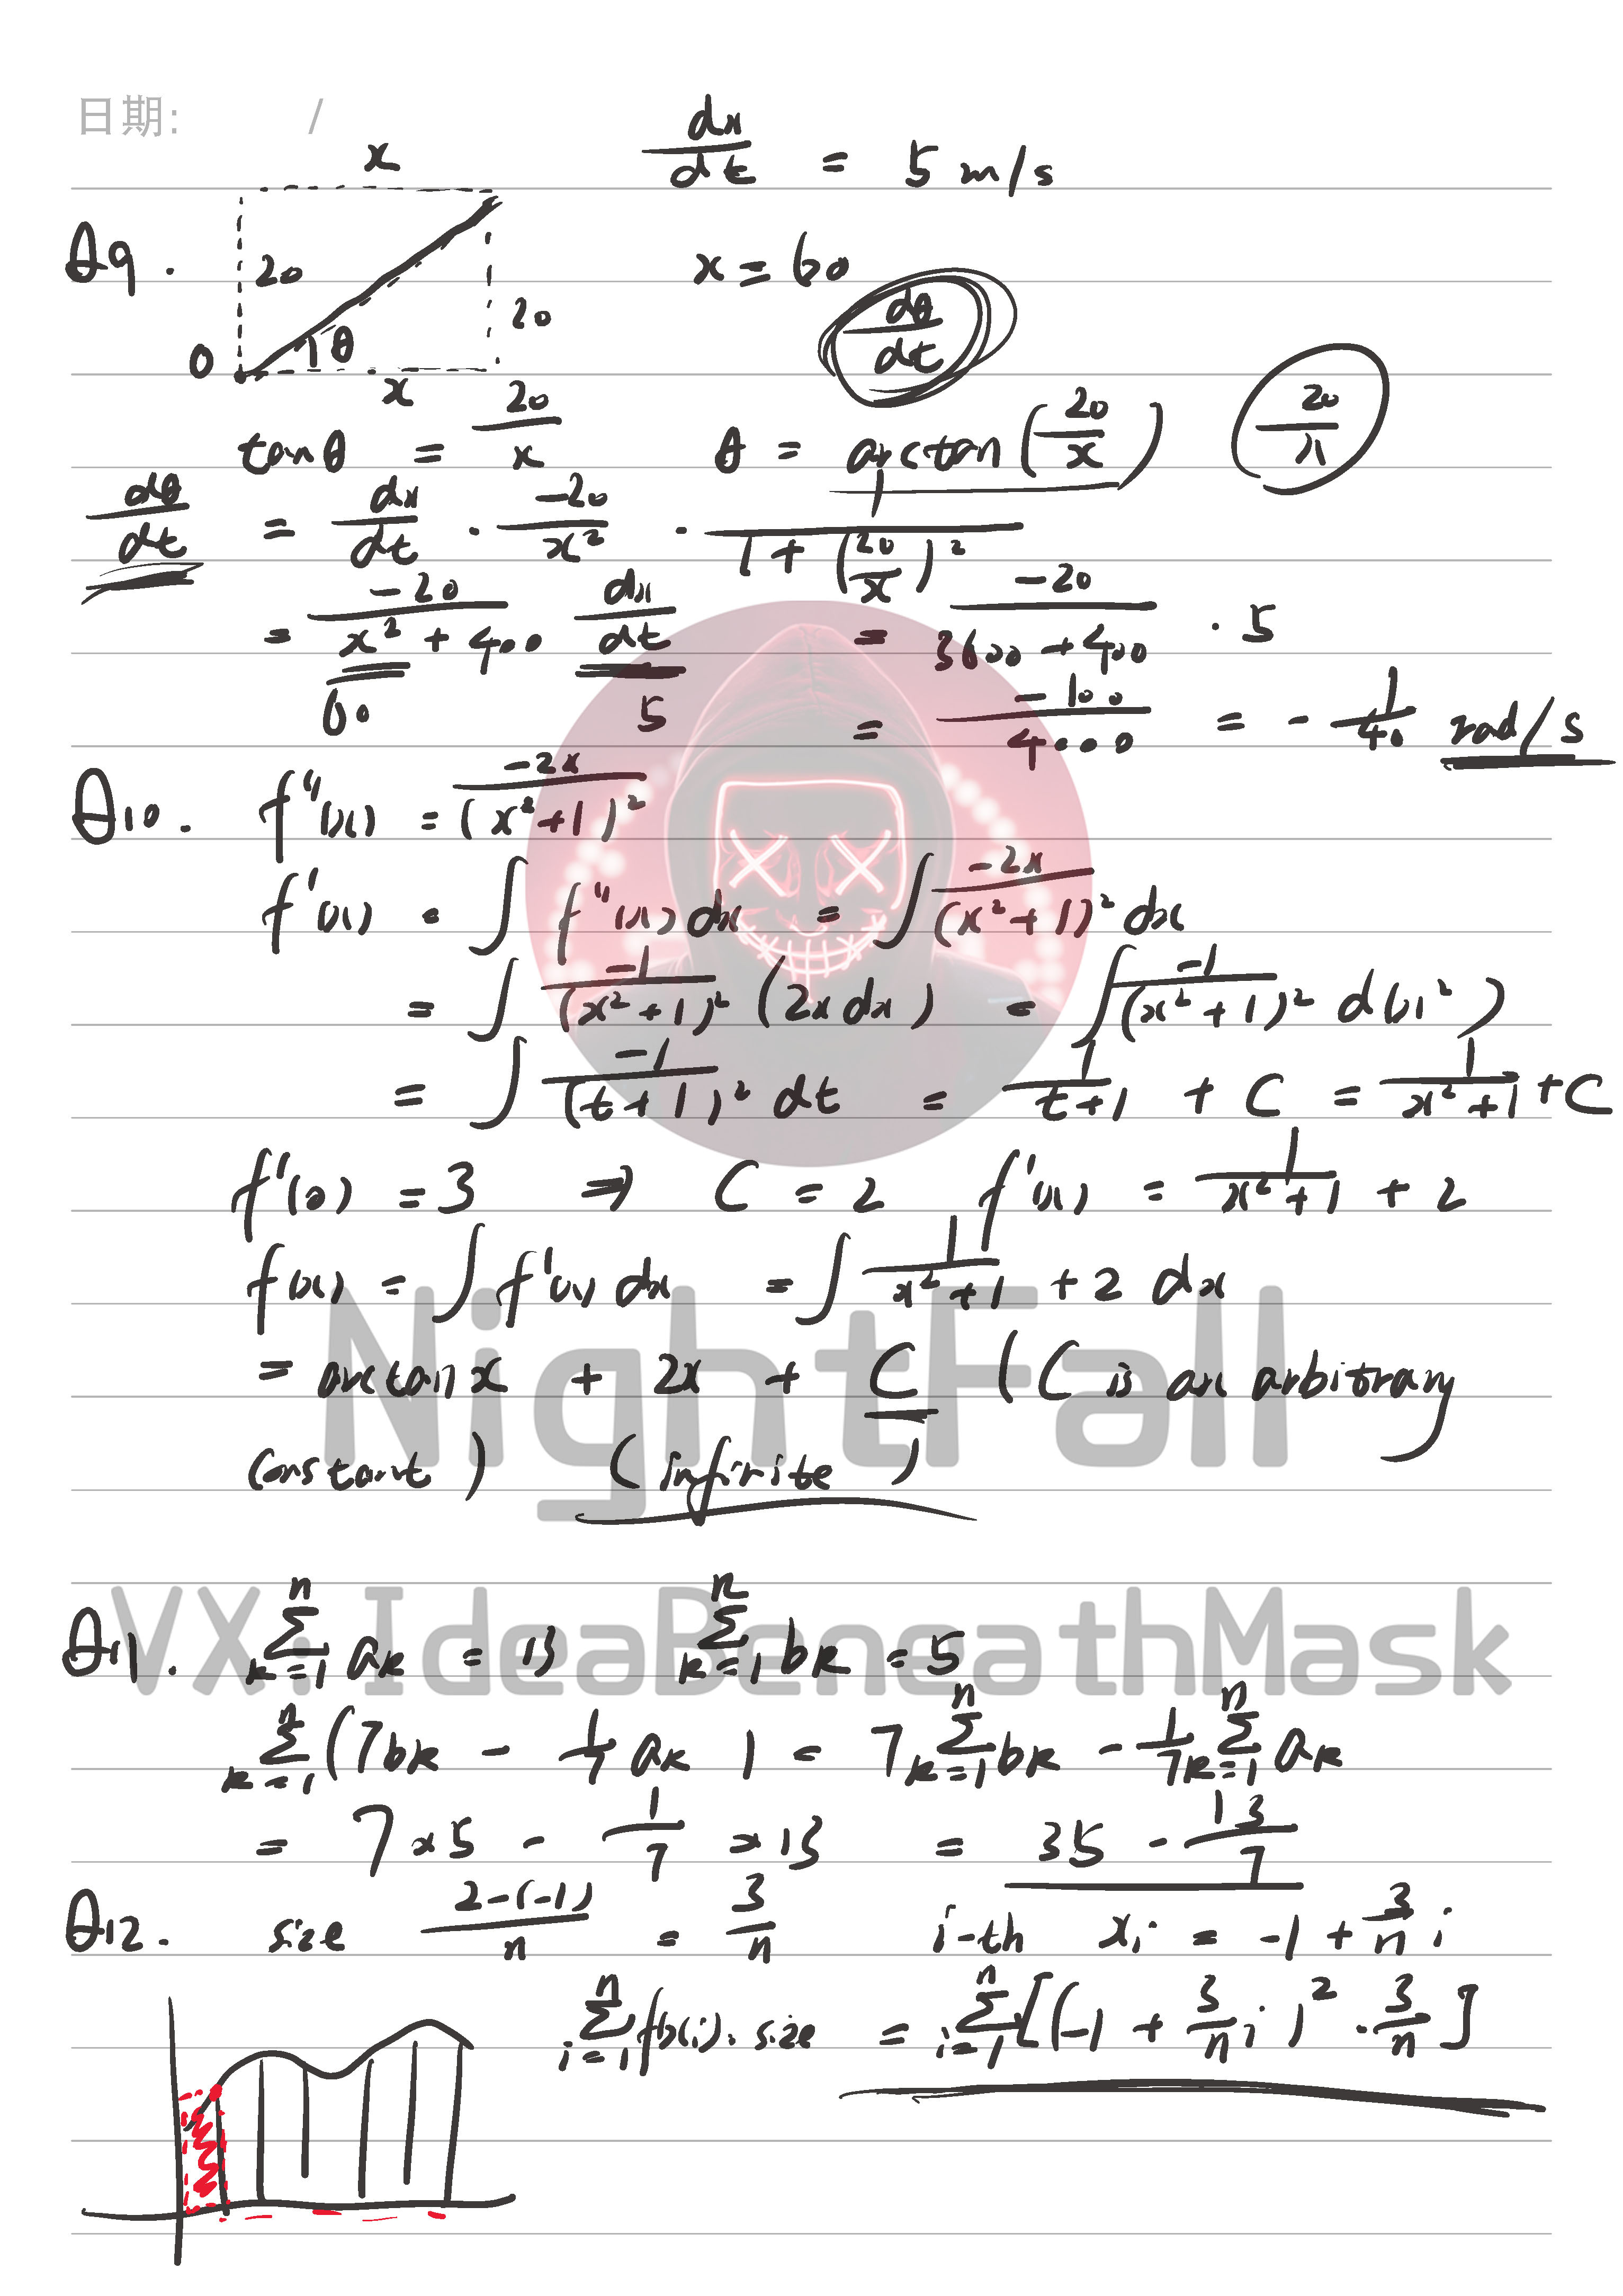 日期: /
x dx/dt = 5 m/s
Q9. 20 x = 60
20
dθ/dt
0 θ
x
tanθ = 20/x θ = arctan(20/x) 20/x
dθ/dt = dx/dt · -20/x² · 1/(1 + (20/x)²)
= -20/(x² + 400) dx/dt = -20/(3600 + 400) · 5
60 5 = -100/4000 = - 1/40 rad/s
Q10. f''(x) = -2x/(x²+1)²
f'(x) = ∫ f''(x) dx = ∫ -2x/(x²+1)² dx
= ∫ -1/(x²+1)² (2x dx) = ∫ -1/(x²+1)² d(x²)
= ∫ -1/(t+1)² dt = 1/(t+1) + C = 1/(x²+1) + C
f'(0) = 3 ⇒ C = 2 f'(x) = 1/(x²+1) + 2
f(x) = ∫ f'(x) dx = ∫ 1/(x²+1) + 2 dx
= arctan x + 2x + C (C is an arbitrary
constant) (infinite)
NightFall
VX: IdeaBeneathMask
Q11. Σ_{k=1}^{n} a_k = 13 Σ_{k=1}^{n} b_k = 5
Σ_{k=1}^{n} (7b_k - 1/7 a_k) = 7 Σ_{k=1}^{n} b_k - 1/7 Σ_{k=1}^{n} a_k
= 7×5 - 1/7 ×13 = 35 - 13/7
Q12. size 2-(-1)/n = 3/n i-th x_i = -1 + 3/n i
Σ_{i=1}^{n} f(x_i)· size = Σ_{i=1}^{n} [(-1 + 3/n i)² · 3/n]